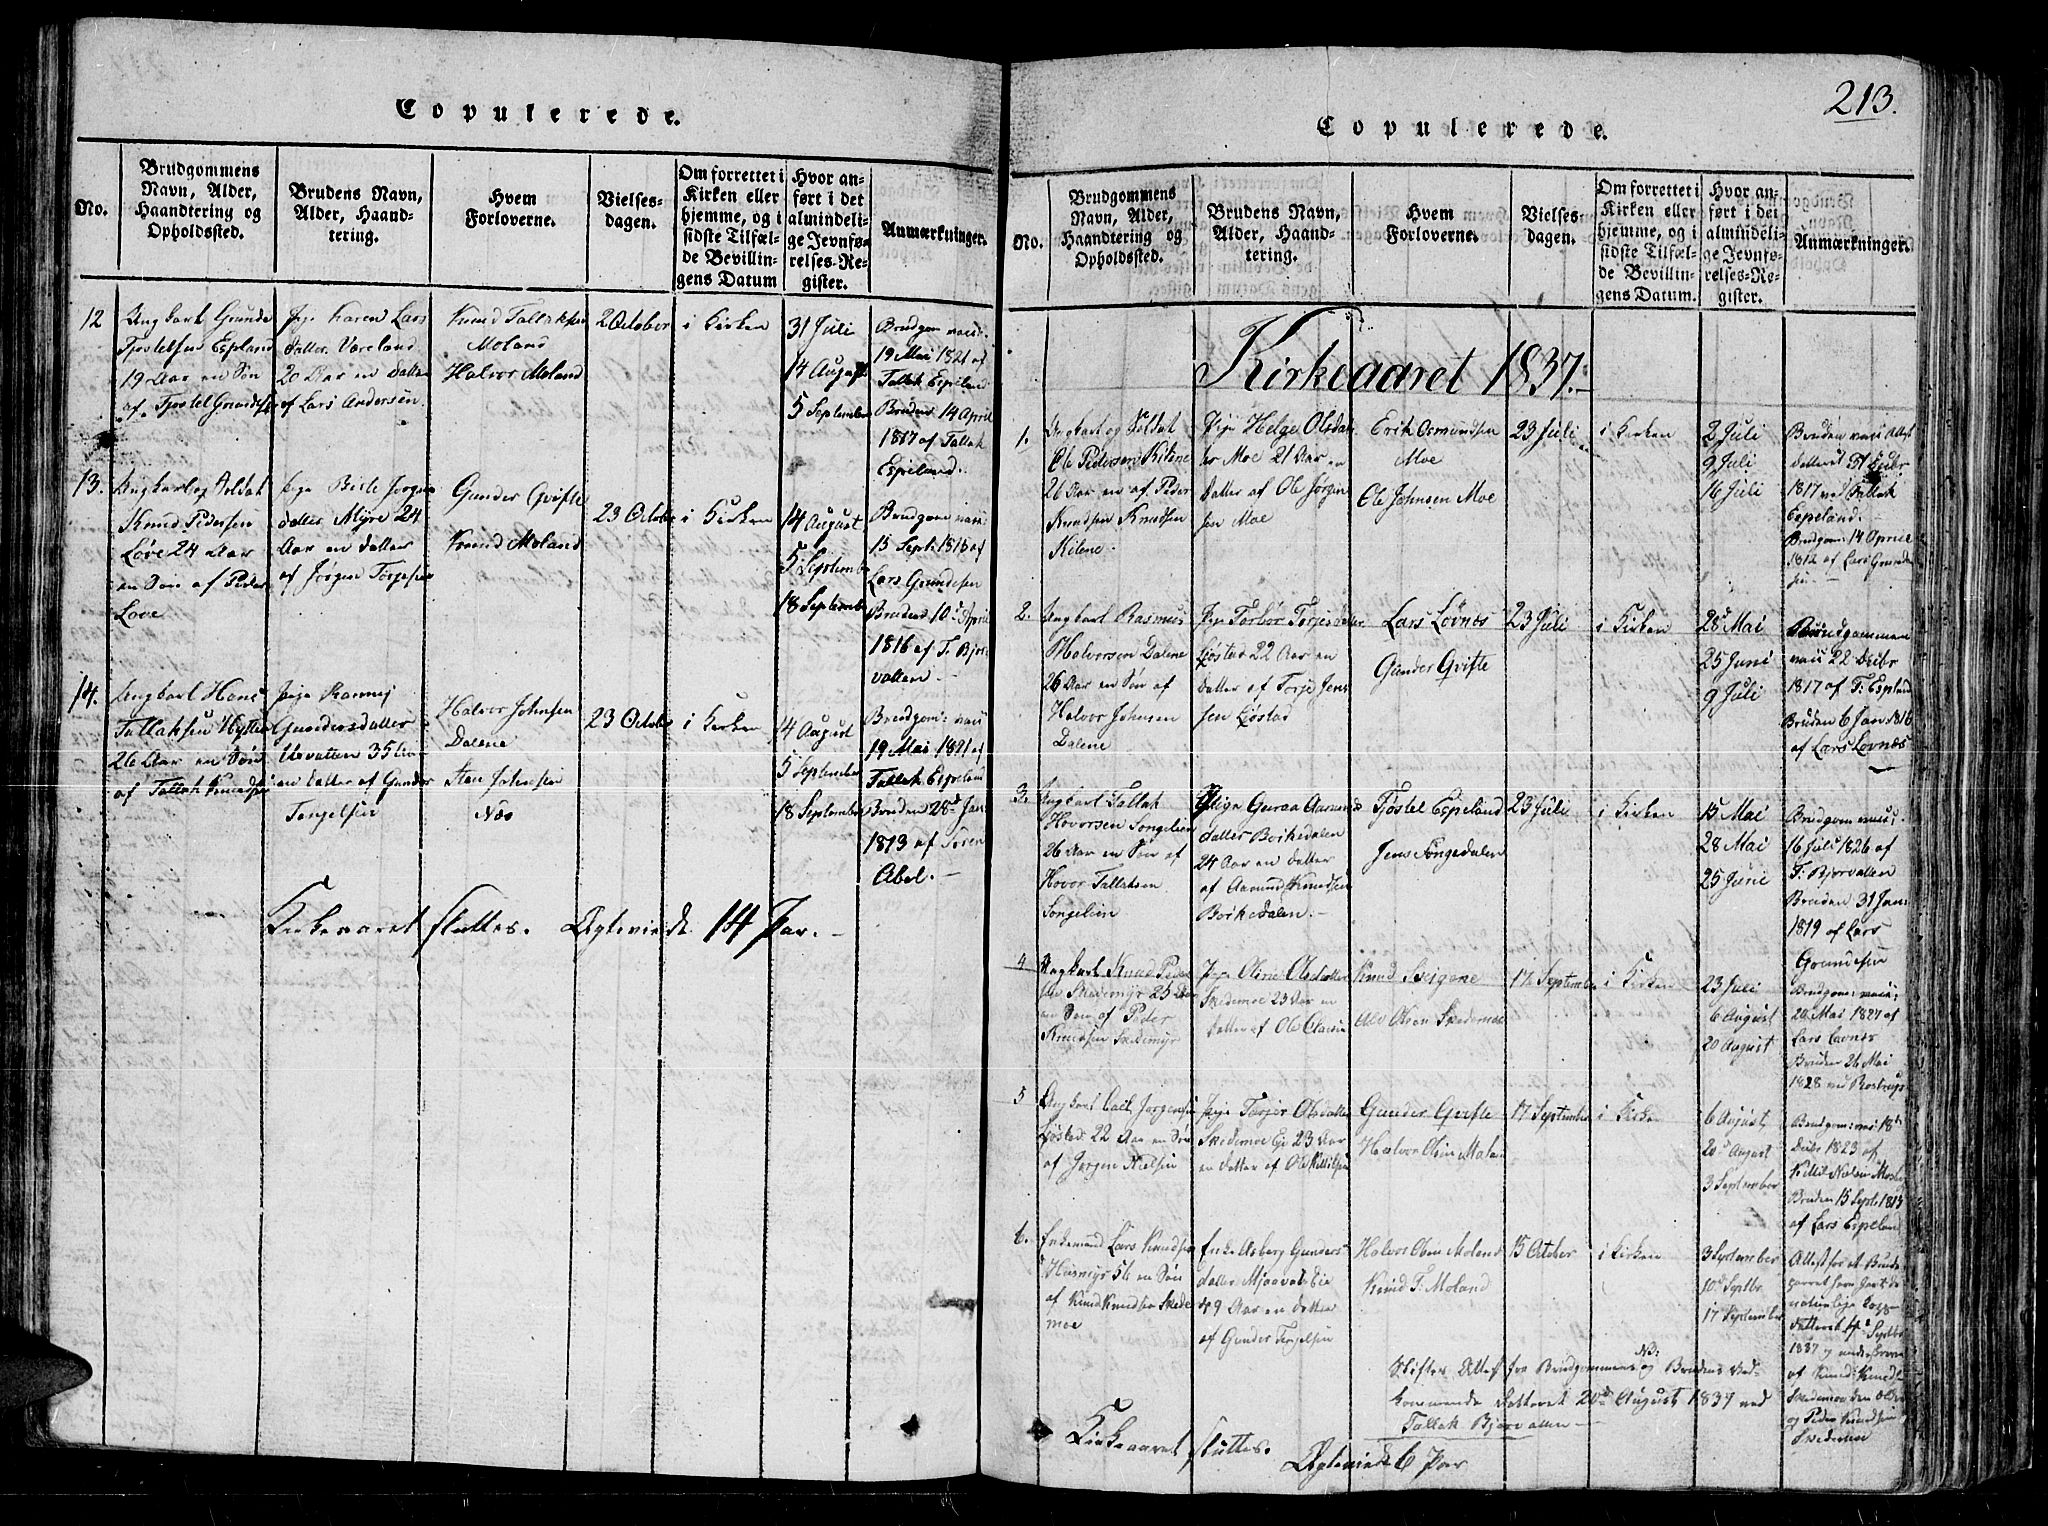 Copulerede.
No.
Brudgommens
Navn, Alder,
Haandtering og
Opholdssted.
Brudens Navn,
Alder, Haand-
tering.
Hvem
Forloverne.
Vielses-
dagen.
Om forrettet i
Kirken eller
hjemme, og i
sidste Tilfæl-
de Bevillin-
gens Datum
Hvor an-
ført i det
almindeli-
ge Jevnfø-
relses-Re-
gister.
Anmærkninger.
12
Ungkarl Gunde
Tjostelsen Espland
19 Aar en Søn
af Tjostel Gundesen
Pige Karen Lars
datter Væreland
20 Aar en datter
af Lars Andersen.
Knud Tallaksen
Moland
Halvor Moland
2 October
i Kirken
31 Juli
14 August
5 September
Brudgom vacc:
19 Mai 1821 af
Tallak Espeland
Bruden 14 April
1817 af Tallak
Espeland.
13.
Ungkarl og Soldat
Knud Pedersen
Løve 24 Aar
en Søn af Peder
Love
Pige Birte Jørgens
datter Myre 24
Aar en datter
af Jørgen Torjesen
Gunder Qvifte
Knud Moland
23 October
i Kirken
14 August
5 September
18 September
Brudgom vacc:
15 Sept: 1815 af
Lars Gundesen
Bruden 10d April
1816 af T. Bjor
vatten
14.
Ungkarl Hans
Tallaksen Hytten
26 Aar en Søn
af Tallak Knudsen
Pige
Gundersdatter
Uevatten 35 Aar
en datter af Gunder
Tengelsen
Halvor Johnsen
Dalene
Sten Johnsen
Næs
23 October
i Kirken
14 August
5 September
18 September
Brudgom: vacc
19 Mai 1821 af
Tallak Espeland
Bruden 28d Jan
1813 af Søren
Abel.
Kirkeaaret sluttes. Ægteviede 14 Par.
213.
Copulerede.
No.
Brudgommens
Navn, Alder,
Haandtering og
Opholdssted.
Brudens Navn,
Alder, Haand-
tering.
Hvem
Forloverne.
Vielses
dagen.
Om forrettet i
Kirken eller
hjemme, og i
sidste Tilfæl-
de Bevillin-
gens Datum.
Hvor an-
ført i det
almindeli-
ge Jevnfø-
relses-Re-
gister.
Anmærkninger.
Kirkeaaret 1837.
1.
Ungkarl og Soldat
Ole Pedersen Kilene
26 Aar en af Peder
Knudsen Knudsen
Kilene
Pige Helge Olsdat
ter Moe 21 Aar en
datter af Ole Jørgen
sen Moe
Erik Osmundsen
Moe
Ole Johnsen Moe
23 Juli
i Kirken
2 Juli
9 Juli
16 Juli
Bruden vacc Attest
datteret 31 Decbr
1817 ved Tallak
Espeland.
Brudgom: 14 April
1812 af Lars Gunde
sen
2.
Ungkarl Rasmus
Halvorsen Dalene
26 Aar en Søn af
Halvor Johnsen
Dalene
Pige Torbor Torjesdatter
Løstad 22 Aar en
datter af Torje Jens
sen Løstad
Lars Løvnes
Gunder Qvifte
23 Juli
i Kirken
28 Mai
25 Juni
9 Juli
Brudgommen
vacc 22 Decbr
1817 af T: Espland
Bruden 6 Jan 1816
af Lars Lovnæs
3.
Ungkarl Tallak
Hovorsen Songelien
26 Aar en Søn af
Hovor Tallaksen
Songelien
Pige Guroa Aamunds
datter Borkedalen
24 Aar en datter
af Aamund Knudsen
Borkedalen.
Tjøstel Espeland
Jens Songedalen
23 Juli
i Kirken
15 Mai
28 Mai
25 Junie
Brudgom vacc:
16 Juli 1826 af
T: Bjorvatten
Bruden 31 Jan
1819 af Lars
Gundesen
4
Ungkarl Knud Peder
sen Skedemyr 25 Aar
en Søn af Peder
Knudsen Skedemyr
Pige Oline Olsdatter
Skedemoe 23 Aar en
datter af Ole Olavsen
Knud Sveigene
Alv Olsen Skedemoe
17 September
i Kirken
23 Juli
6 August
20 August
Brudgom: vacc:
20 Mai 1827 af
Lars Lovnes
Bruden 26 Mai
1828 ved Rostrup
5
Ungkarl Jorgensen
Løstad 22 Aar en Søn
af Jørgen Nielsen
Pige Torjer Olsdatter
Skedemoe Eje 23 Aar
en datter af Ole Kittilsen
Gunder Qvifte
Halvor Olsen Moland
17 September
i Kirken
6 August,
20d August
3 September
Brudgom: vac: 18th
Decbr 1823 af
Kittil
Bruden 15 Septr 1815
af Lars Espeland
6.
Enkemand Lars Knudsen
Husmyr 56 en Søn
af Knud Knudsen Skede
moe
Enke Asberg Gunders
datter Mjaavads Eie
49 Aar en datter
af Gunder Tergelsen
Halvor Olsen Moland
Knud T. Moland
15 October
i Kirken
3 September
10d Septbr
17 September
Attest for at Brude
parret have havt de
naturlige Kopp
datteret 4d Septbr
1837 og underskreven
af Knud Knudsen
Skedemoe
og Peder Knudsen
Skedemoe
NB:
Skifter Attest for Brudgommens og Brudens Ved-
kommende datteret 20d August 1837 ved
Tallak Bjorvatten
Kirkeaaret sluttes. Ægteviede 6 Par